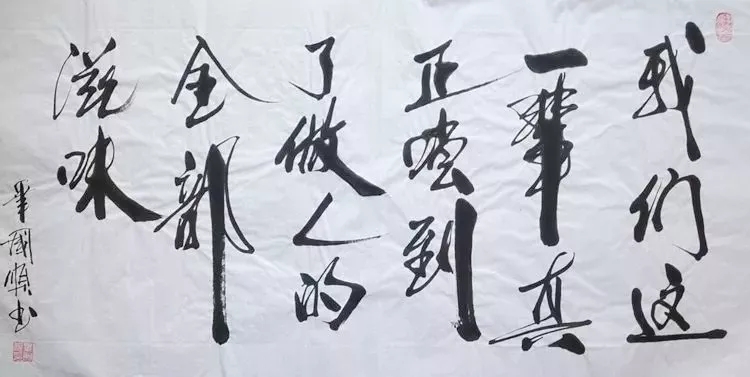 我们这
一辈真
正尝到
了做人的
全部
滋味
毕国顺书